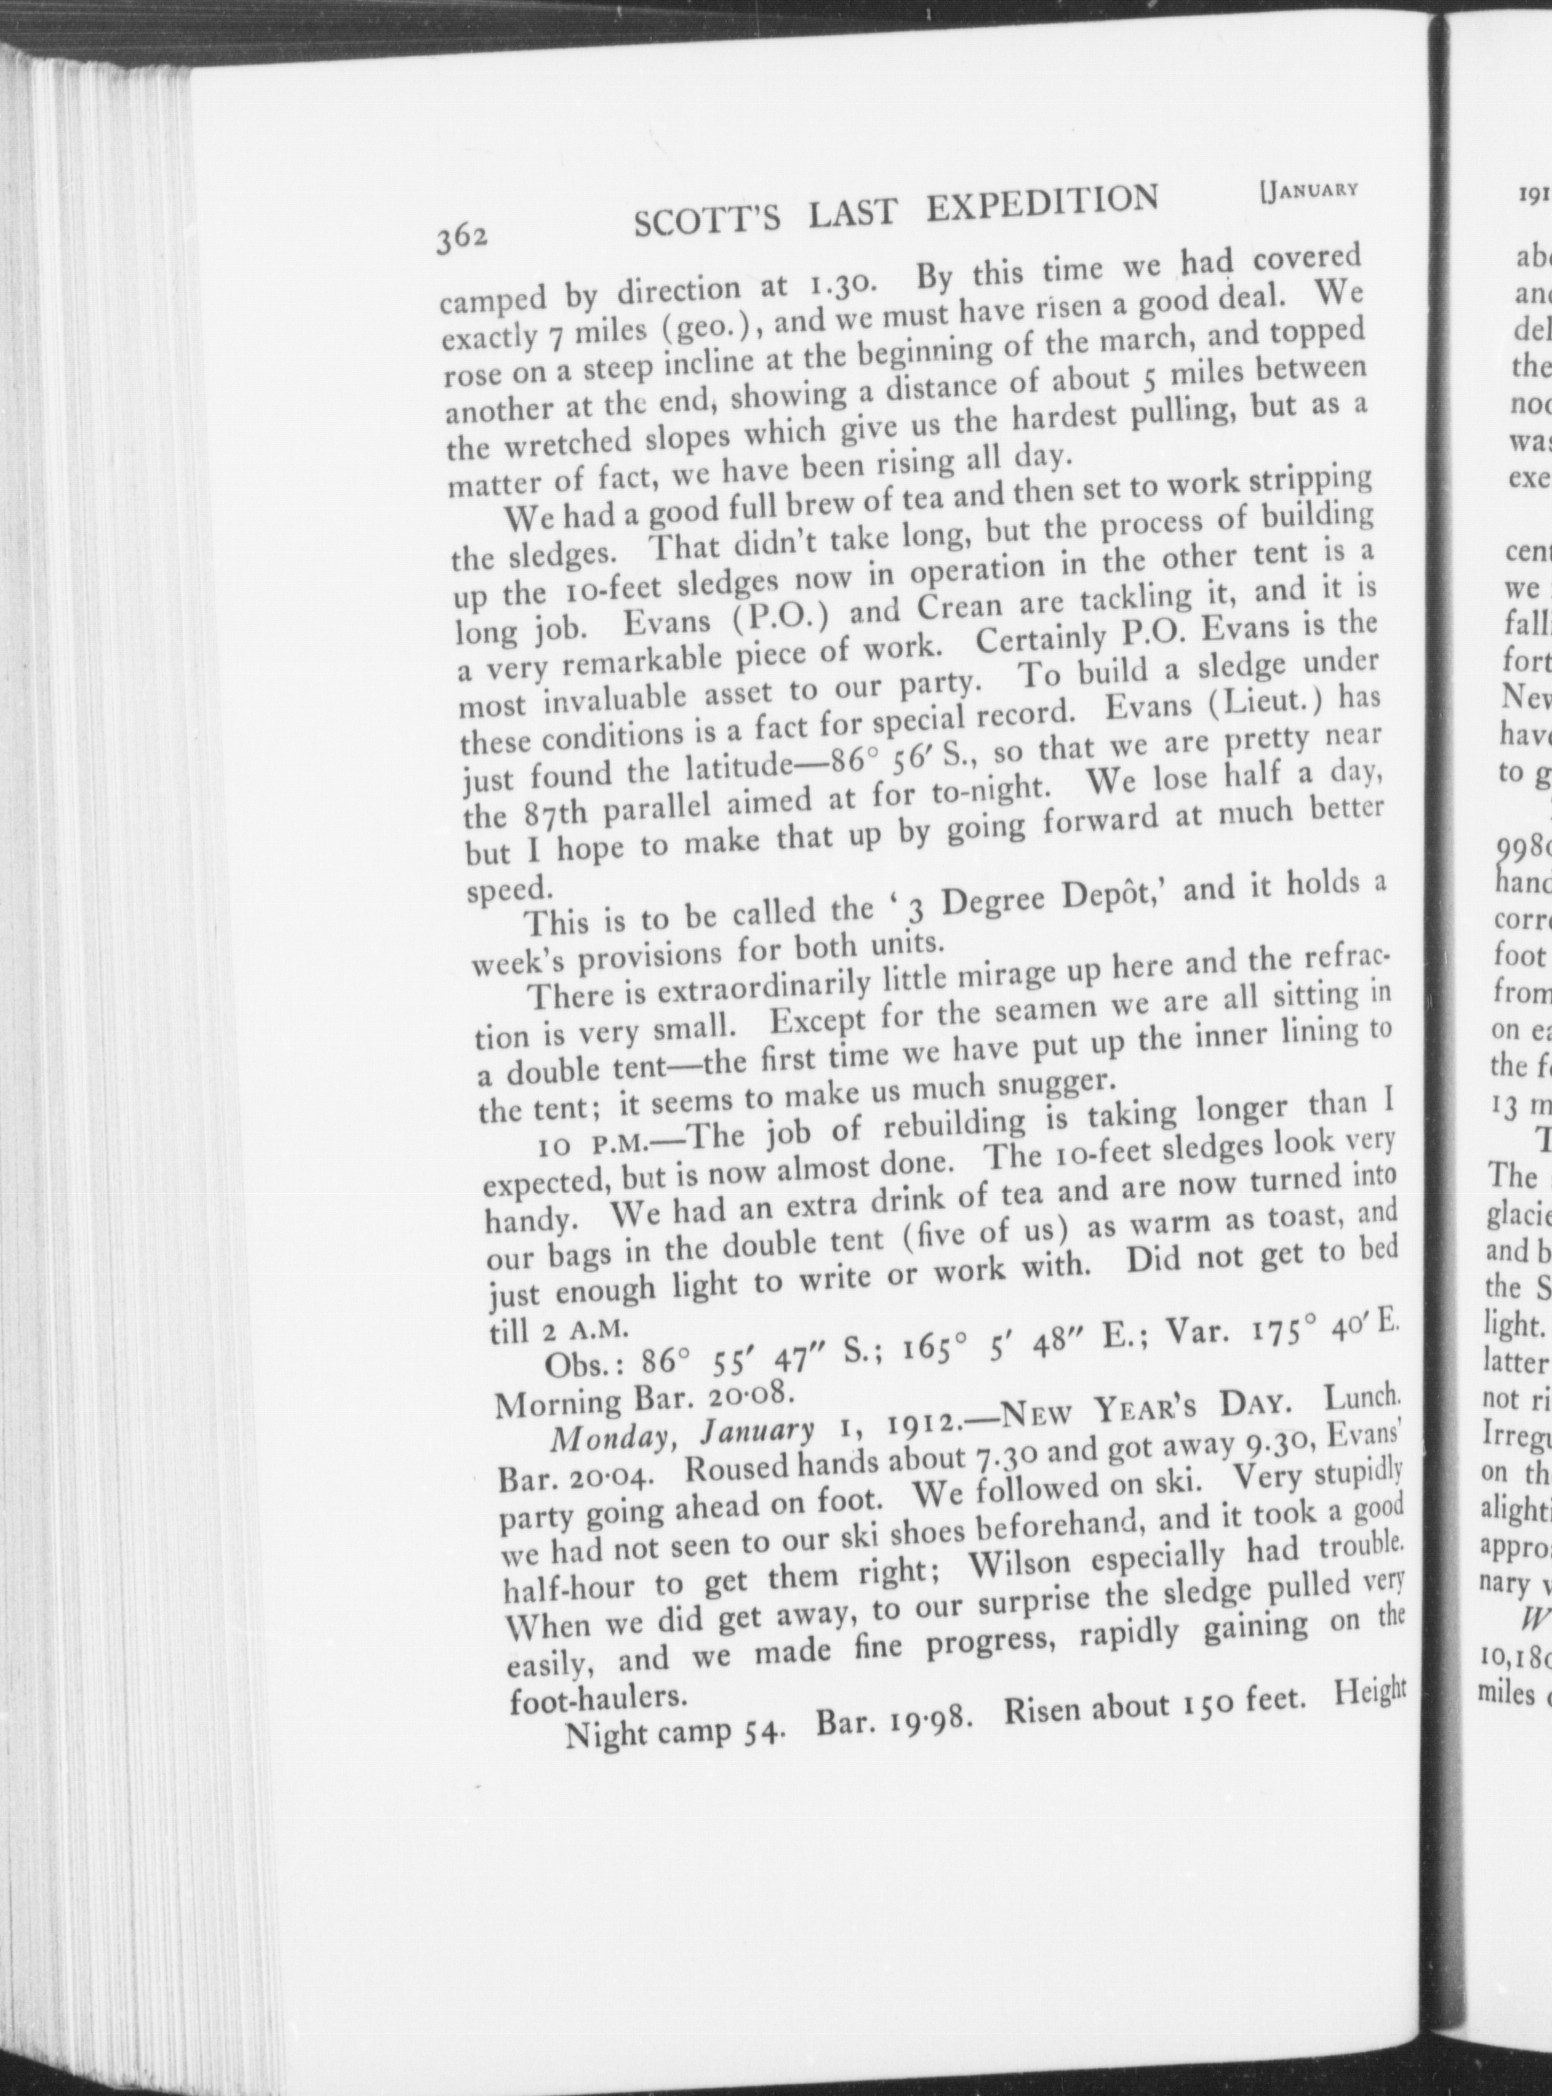 362 SCOTT'S LAST EXPEDITION [JANUARY
camped by direction at 1.30. By this time we had covered
exactly 7 miles (geo.), and we must have risen a good deal. We
rose on a steep incline at the beginning of the march, and topped
another at the end, showing a distance of about 5 miles between
the wretched slopes which give us the hardest pulling, but as a
matter of fact, we have been rising all day.
We had a good full brew of tea and then set to work stripping
the sledges. That didn't take long, but the process of building
up the 10-feet sledges now in operation in the other tent is a
long job. Evans (P.O.) and Crean are tackling it, and it is
a very remarkable piece of work. Certainly P.O. Evans is the
most invaluable asset to our party. To build a sledge under
these conditions is a fact for special record. Evans (Lieut.) has
just found the latitude—86° 56′ S., so that we are pretty near
the 87th parallel aimed at for to-night. We lose half a day,
but I hope to make that up by going forward at much better
speed.
This is to be called the ‘ 3 Degree Depôt,’ and it holds a
week's provisions for both units.
There is extraordinarily little mirage up here and the refrac-
tion is very small. Except for the seamen we are all sitting in
a double tent—the first time we have put up the inner lining to
the tent; it seems to make us much snugger.
10 P.M.—The job of rebuilding is taking longer than I
expected, but is now almost done. The 10-feet sledges look very
handy. We had an extra drink of tea and are now turned into
our bags in the double tent (five of us) as warm as toast, and
just enough light to write or work with. Did not get to bed
till 2 A.M.
Obs.: 86° 55′ 47″ S.; 165° 5′ 48″ E.; Var. 175° 40′ E.
Morning Bar. 20·08.
Monday, January 1, 1912.—NEW YEAR'S DAY. Lunch.
Bar. 20·04. Roused hands about 7.30 and got away 9.30, Evans'
party going ahead on foot. We followed on ski. Very stupidly
we had not seen to our ski shoes beforehand, and it took a good
half-hour to get them right; Wilson especially had trouble.
When we did get away, to our surprise the sledge pulled very
easily, and we made fine progress, rapidly gaining on the
foot-haulers.
Night camp 54. Bar. 19·98. Risen about 150 feet. Height
191
the
we
to
hand
foot
from
the
13
The
and
the
light.
latter
not
on
W
miles